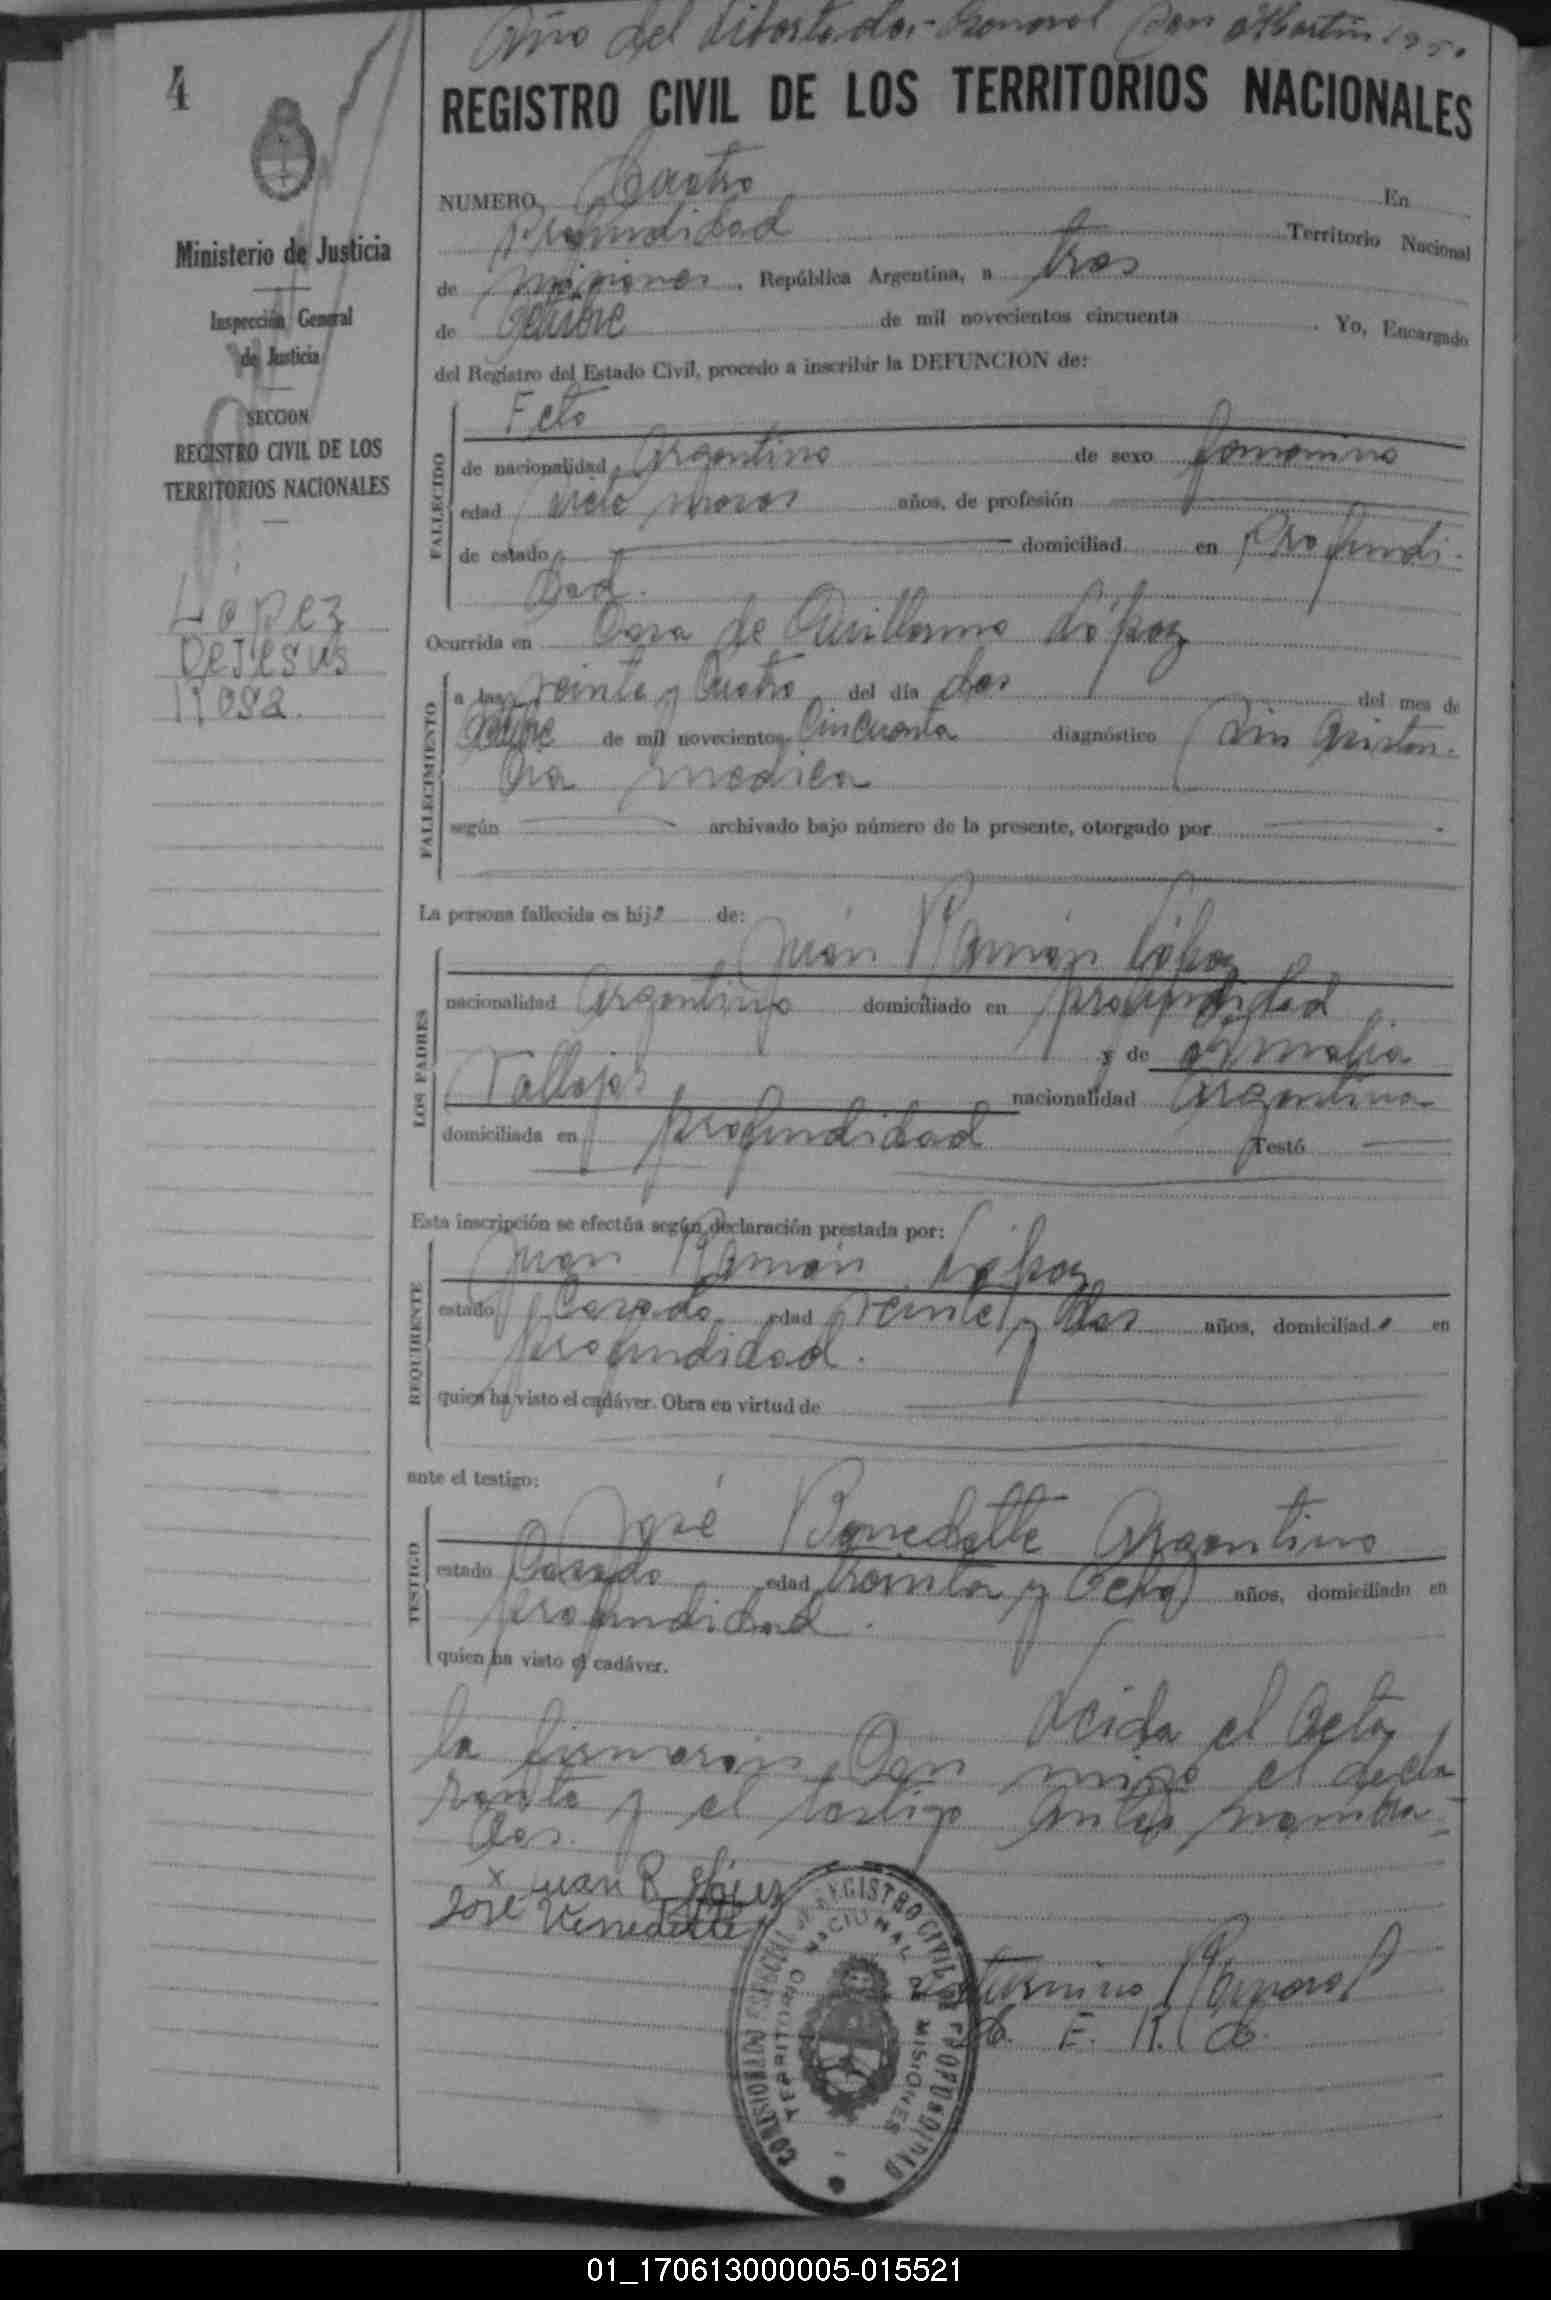 Año del Libertador General San Martín 1950
4
REGISTRO CIVIL DE LOS TERRITORIOS NACIONALES
NUMERO Cuatro En
Profundidad Territorio Nacional
de Misiones, República Argentina, a tres
de Octubre de mil novecientos cincuenta. Yo, Encargado
del Registro del Estado Civil, procedo a inscribir la DEFUNCION de:
Ministerio de Justicia
Inspección General
de Justicia
SECCION
REGISTRO CIVIL DE LOS
TERRITORIOS NACIONALES
López
DeJesus
Rosa.
FALLECIDO
Feto
de nacionalidad Argentino de sexo femenino
edad siete meses años, de profesión
de estado domiciliad en Profundi-
dad.
Ocurrida en Casa de Guillermo López
FALLECIMIENTO
a las veinte y Cuatro del día dos del mes de
Octubre de mil novecientos Cincuenta diagnóstico Sin Asisten-
cia medica
según archivado bajo número de la presente, otorgado por
La persona fallecida es hij de:
LOS PADRES
Juán Ramón López
nacionalidad Argentino domiciliado en profundidad
y de Amalia
Vallejos nacionalidad Argentina
domiciliada en profundidad Testó
Esta inscripción se efectúa según declaración prestada por:
REQUIRENTE
Juan Ramón López
estado Casado edad veinte y dos años, domiciliado en
profundidad.
quien ha visto el cadáver. Obra en virtud de
ante el testigo:
TESTIGO
José Benedette Argentino
estado Casado edad treinta y Ocho años, domiciliado en
profundidad.
quien ha visto el cadáver.
Leida el Acta,
la firmaron Con migo el decla
rante y el testigo Antes nombra-
dos.
x Juan R López
José Venedette
Ramores
E. R. C.
COMISIONADO ESPECIAL REGISTRO CIVIL DE PROFUNDIDAD
TERRITORIO NACIONAL DE MISIONES
01_170613000005-015521